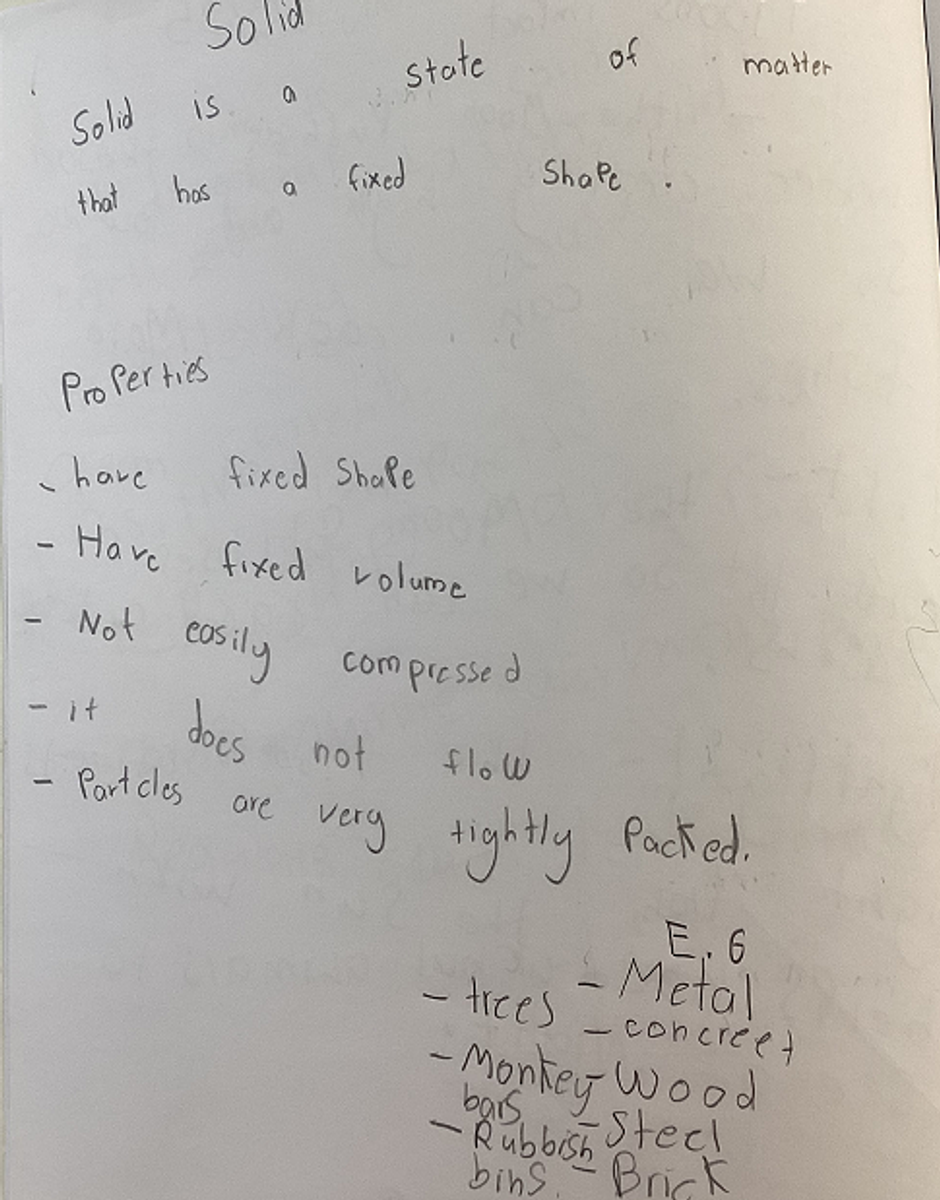 Solid
Solid is a state of matter
that has a fixed Shape .
Properties
- have fixed Shape
- Have fixed volume
- Not easily compressed
- it does not flow
- Partcles are very tightly Packed.
E.G
- trees
- Monkey
bars
- Rubbish
bins.
- Metal
- concreet
- Wood
- Steel
- Brick